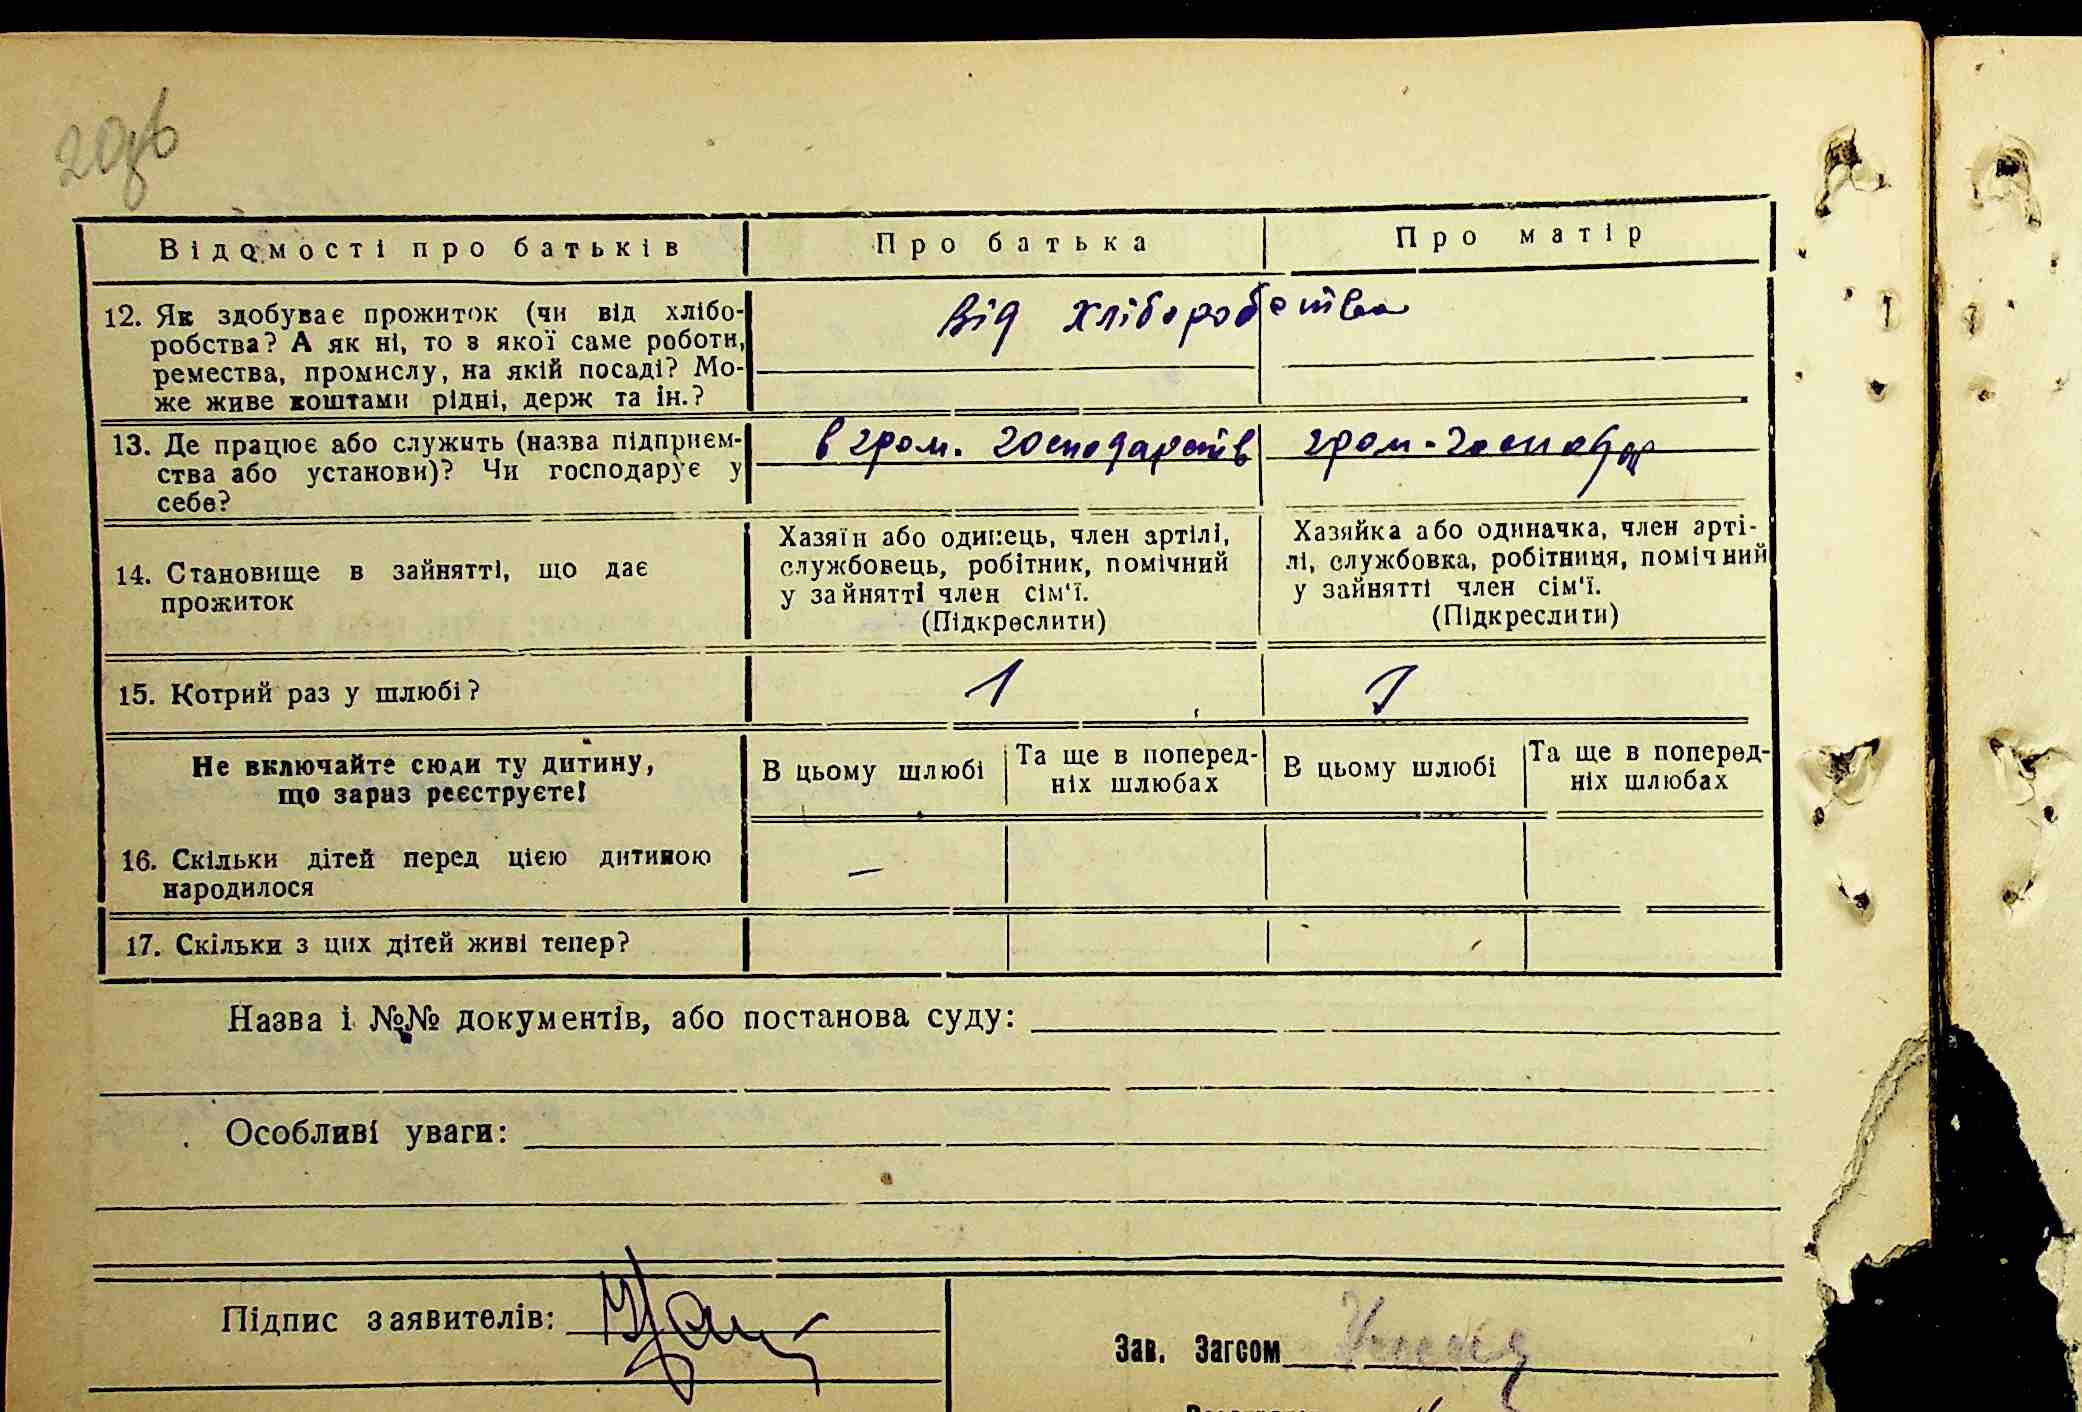 20зв
Відомості про батьків Про батька Про матір
12. Як здобуває прожиток (чи від хлібо-
робства? А як ні, то з якої саме роботи,
ремества, промислу, на якій посаді? Мо-
же живе коштами рідні, держ та ін.?
від хліборобства
13. Де працює або служить (назва підприєм-
ства або установи)? Чи господарує у
себе?
в гром. господарстів
гром. господар
14. Становище в зайнятті, що дає
прожиток
Хазяїн або одинець, член артілі,
службовець, робітник, помічний
у зайнятті член сім'ї.
(Підкреслити)
Хазяйка або одиначка, член арті-
лі, службовка, робітниця, помічний
у зайнятті член сім'ї.
(Підкреслити)
15. Котрий раз у шлюбі? 1 1
Не включайте сюди ту дитину,
що зараз реєструєте!
В цьому шлюбі
Та ще в поперед-
ніх шлюбах
В цьому шлюбі
Та ще в поперед-
ніх шлюбах
16. Скільки дітей перед цією дитиною
народилося
—
17. Скільки з цих дітей живі тепер?
Назва і №№ документів, або постанова суду:
Особливі уваги:
Підпис заявителів:
Зав. Загсом